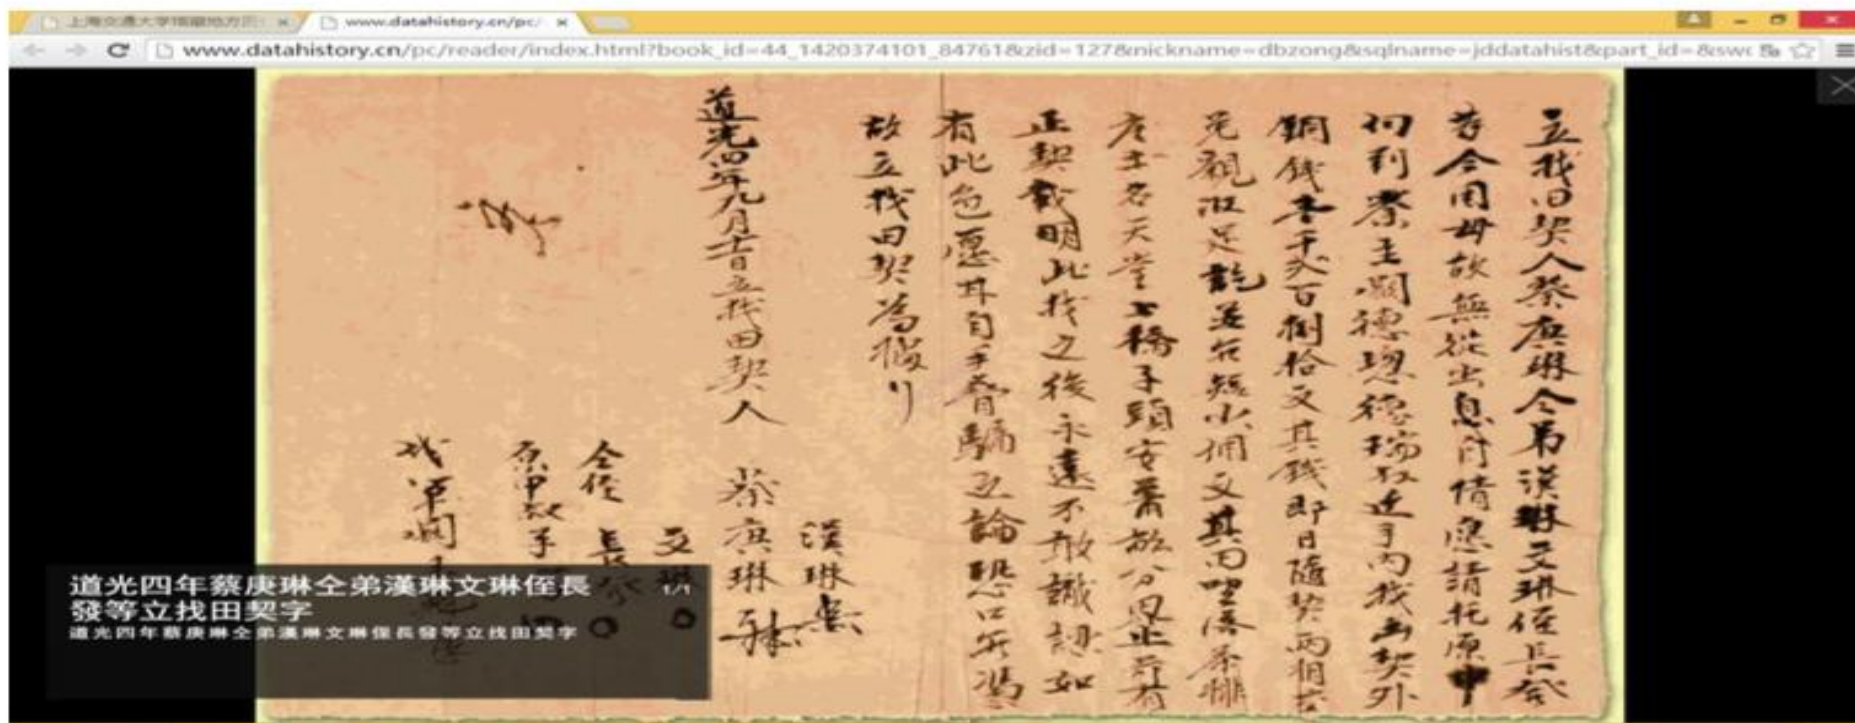 上海交通大学馆藏地方历
www.datahistory.cn/pc/
www.datahistory.cn/pc/reader/index.html?book_id=44_1420374101_84761&zid=127&nickname=dbzong&sqlname=jddatahist&part_id=&swc
立找田契人蔡庚琳仝弟漢琳文琳侄長發
等今因母故無從出息自情愿請托原中
向到蔡主嗣德璁德瑞叔近手內找出契外
銅錢壹千弍百捌拾文其錢即日隨契兩相
見親收足訖並無短少佃文其田坐落
產土名天堂
正契載明此找之後永遠不敢識認如
有此色愿甘自手脊騙之論恐口無馮
故立找田契為據
道光四年九月 立找田契人 蔡庚琳
漢琳
文琳
仝侄 長發
原中叔
代筆
道光四年蔡庚琳仝弟漢琳文琳侄長
發等立找田契字
道光四年蔡庚琳仝弟漢琳文琳侄長發等立找田契字
1/1